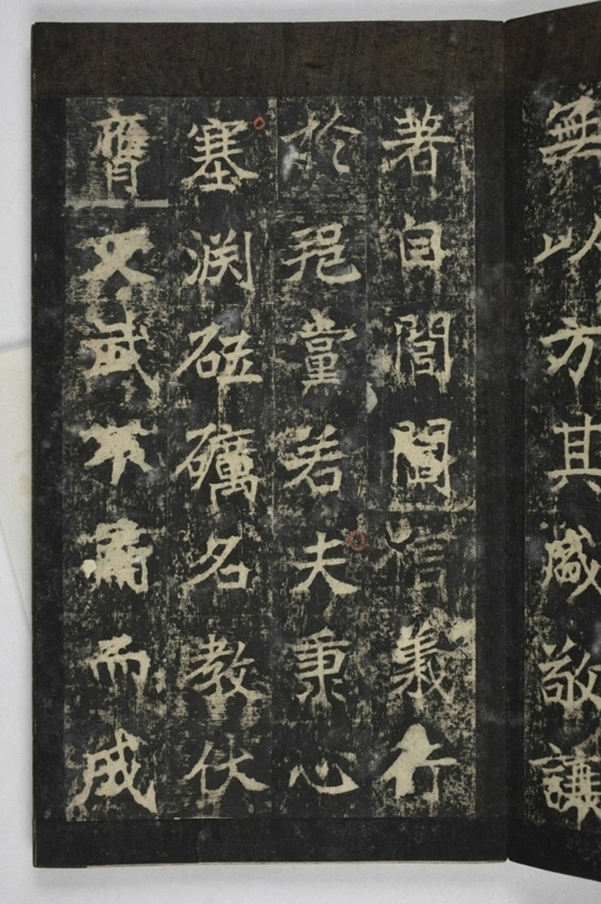 無以方其盛敬謙
著自閭閻信義行
於邑黨若夫秉心
塞渊砥礪名教伏
膺文武不肅而成